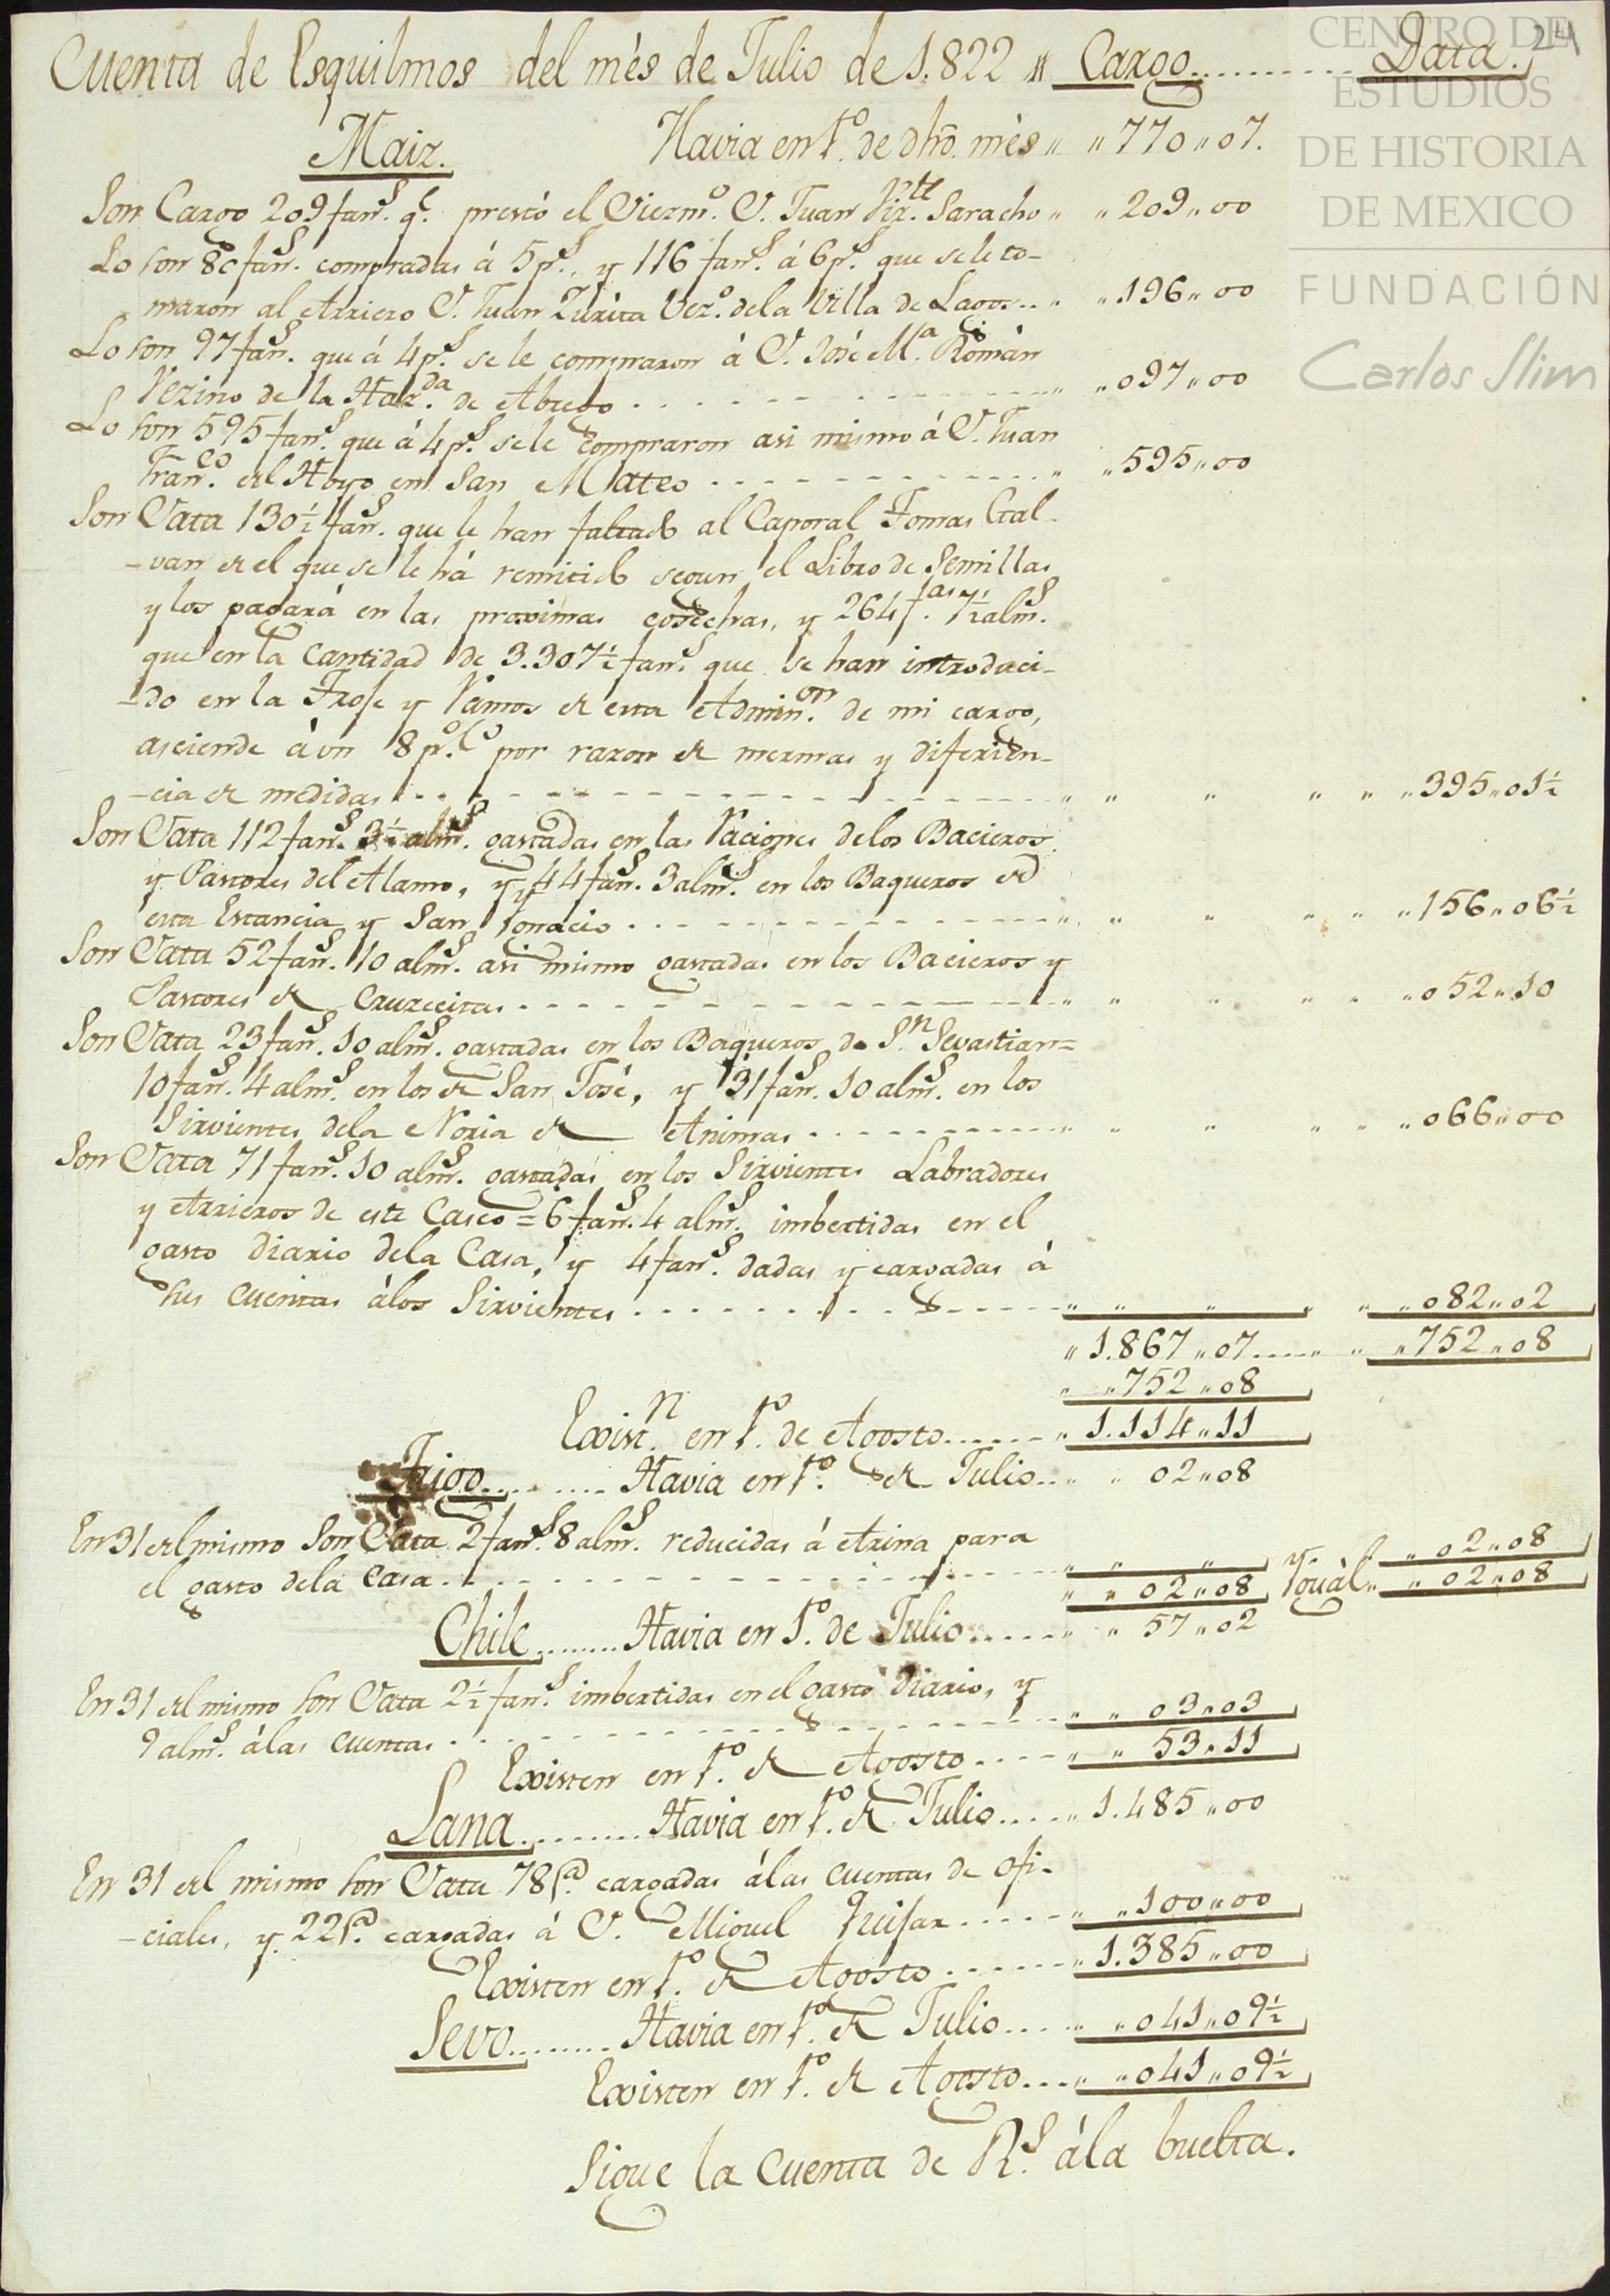 Cuenta de Esquilmos del mès de Julio de 1.822 〃 Cargo.......... Data.
24
CENTRO DE
ESTUDIOS
DE HISTORIA
DE MEXICO
FUNDACIÓN
Carlos Slim
Maiz. Havia en 1º. de dho. mès 〃 〃 770〃07.
Son Cargo 209 fanˢ. qᵉ. prestó el Diezmº. D. Juan Saracho 〃 〃 209〃00
Lo son 80 fanˢ. compradas á 5 pˢ., y 116 fanˢ. á 6 pˢ. que se le to-
maron al Arriero D. Juan Zurita Vezº. de la Villa de Lagos.. 〃 〃 196〃00
Lo son 97 fanˢ. que á 4 pˢ. se le compraron á D. José Mª. Román
Vezino de la Hazᵈᵃ. de Abrego . . . . . . 〃 〃 097〃00
Lo son 595 fanˢ. que á 4 pˢ. se le compraron asi mismo á D. Juan
Franᶜᵒ. del Hoyo en San Mateo . . . . . . 〃 〃 595〃00
Son Data 130½ fanˢ. que le han faltado al Caporal Tomas Gal-
-van de el que se le há remitido segun el Libro de Semillas
y los pagará en las proximas cosechas, y 264 fᵃˢ. 7½ almˢ.
que en la cantidad de 3.307½ fanˢ. que se han introduci-
-do en la Troje y Ramos de esta Adminᵒⁿ. de mi cargo,
asciende á un 8 pº.Cº por razon de mermas y diferien-
-cia de medidas . . . . . . 〃 〃 〃 〃 〃 〃 395〃01½
Son Data 112 fanˢ. 3½ almˢ. gastadas en las Raciones de los Bacieros
y Pastores del Alamo, y 44 fanˢ. 3 almˢ. en los Baqueros de
esta Estancia y San Ignacio . . . . . . 〃 〃 〃 〃 〃 〃 156〃06½
Son Data 52 fanˢ. 10 almˢ. asi mismo gastadas en los Bacieros y
Pastores de Cruzecitas . . . . . . 〃 〃 〃 〃 〃 〃 052〃10
Son Data 23 fanˢ. 10 almˢ. gastadas en los Baqueros de Sⁿ. Sevastian=
10 fanˢ. 4 almˢ. en los de San José, y 31 fanˢ. 10 almˢ. en los
Sirvientes de la Noria de Animas . . . . . . 〃 〃 〃 〃 〃 〃 066〃00
Son Data 71 fanˢ. 10 almˢ. gastadas en los Sirvientes Labradores
y Arrieros de este Casco = 6 fanˢ. 4 almˢ. imbertidas en el
gasto diario de la Casa, y 4 fanˢ. dadas y cargadas á
sus cuentas á los Sirvientes . . . . . . 〃 〃 〃 〃 〃 〃 082〃02
〃 1.867〃07..... 〃 〃 〃 752〃08
〃 〃 752〃08
Existⁿ. en 1º. de Agosto...... 〃 1.114〃11
Trigo......... Havia en 1º. de Julio.. 〃 〃 02〃08
En 31 del mismo Son Data 2 fanˢ. 8 almˢ. reducidas á Arina para
el gasto de la Casa . . . . . . 〃 〃 〃 〃 02〃08
〃 〃 02〃08 Yguàl 〃 〃 02〃08
Chile........ Havia en 1º. de Julio..... 〃 〃 57〃02
En 31 del mismo son Data 2½ fanˢ. imbertidas en el gasto diario, y
9 almˢ. á las cuentas . . . . . . 〃 〃 03〃03
Existen en 1º. de Agosto..... 〃 〃 53〃11
Lana......... Havia en 1º. de Julio..... 〃 1.485〃00
En 31 del mismo son Data 78 @. cargadas á las cuentas de ofi-
-ciales, y 22 @. cargadas á D. Miguel Quijar..... 〃 〃 100〃00
Existen en 1º. de Agosto...... 〃 1.385〃00
Sevo......... Havia en 1º. de Julio.... 〃 〃 041〃09½
Existen en 1º. de Agosto.... 〃 〃 041〃09½
Sigue la cuenta de Rˢ. á la buelta.